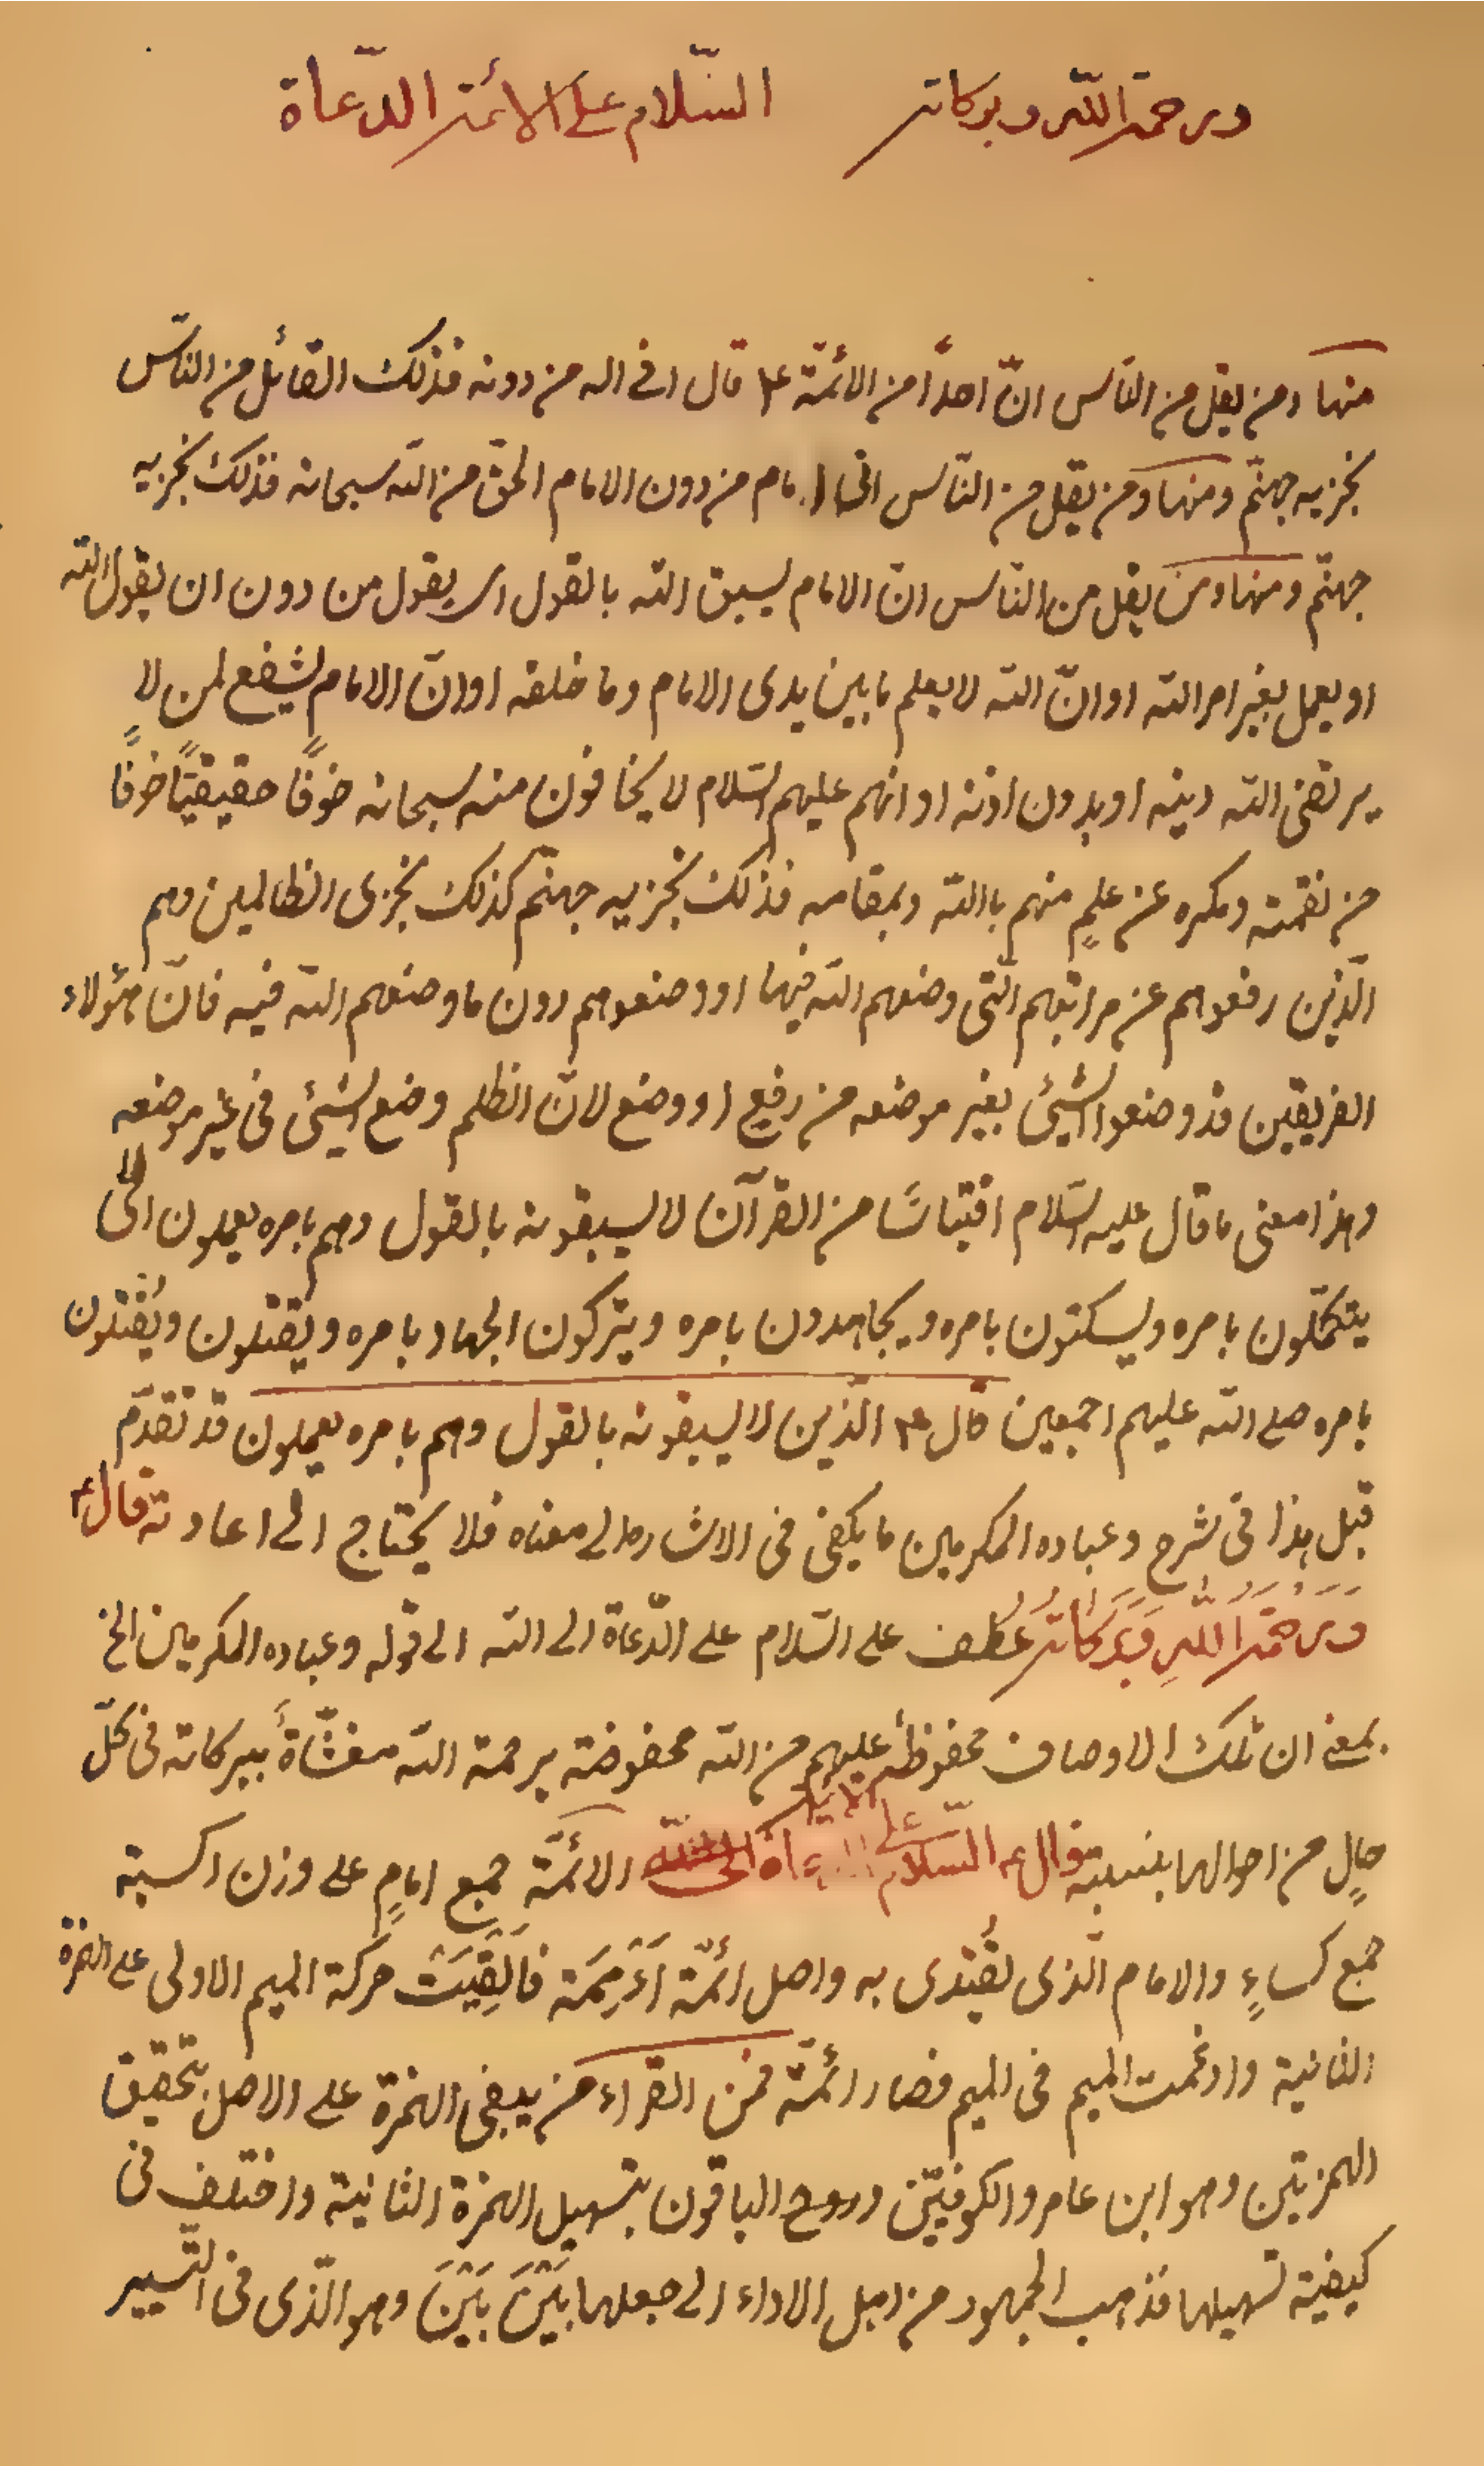 ورحمة الله وبركاته السّلام على الائمة الدّعاة
منها ومن يقل من النّاس انّ احداً من الائمّة ع قال انى اله من دونه فذلك القائل من النّاس
نجزيه جهنّم ومنها ومن يقل من النّاس انى امام من دون الامام الحقّ من الله سبحانه فذلك نجزيه
جهنّم ومنها ومن يقل من النّاس انّ الامام يسبق الله بالقول اى يقول من دون ان يقول الله
او يعمل بغير امر الله او انّ الله لا يعلم ما بين يدى الامام وما خلفه او انّ الامام يشفع لمن لا
يرتضى الله دينه او بدون اذنه او انهم عليهم السّلام لا يخافون منه سبحانه خوفًا حقيقيّا خوفًا
من نقمته ومكره عن علمٍ منهم بالله وبمقامه فذلك نجزيه جهنّم كذلك نجزى الظالمين وهم
الّذين رفعوهم عن مراتبهم الّتى وضعهم الله فيها او وضعوهم دون ما وضعهم الله فيه فانّ هؤلاء
الفريقين قد وضعوا الشيئ بغير موضعه من رفيع او وضع لانّ الظلم وضع الشيئ فى غير موضعه
وهذا معنى ما قال عليه السّلام اقتباسًا من القرآن لا يسبقونه بالقول وهم بامره يعملون اى لا
يتكلّمون بامره ويسكتون بامره ويجاهدون بامره ويتركون الجهاد بامره ويقتلون ويُقتلون
بامره صلى الله عليهم اجمعين قال ع الّذين لا يسبقونه بالقول وهم بامره يعملون قد تقدّم
قبل هذا فى شرح وعباده المكرمين ما يكفى فى الاشارة الى معناه فلا يحتاج الى اعادته قال ع
وَرَحْمَةُ اللهِ وَبَرَكَاتُهُ عُطِف على السّلام على الدّعاة الى الله الى قوله وعباده المكرمين الخ
بمعنى ان تلك الاوصاف محفوظة عليهم من الله محفوضة برحمة الله مغشّاةً ببركاته فى كلّ
حالٍ من احوالها بنسبته قال ع السّلام على الائمة الدعاة الى الله الائمّة جمع امامٍ على وزن اكسية
جمع كساءٍ والامام الّذى يُقتدى به واصل ائمّة أَءْمِمَة فاُلقِيَتْ حركة الميم الاولى على الهمزة
الثانية وادغمت الميم فى الميم فصار ائمّة فمن القراء من يبقى الهمزة على الاصل بتحقيق
الهمزتين وهو ابن عامر والكوفيّين وروح الباقون بتسهيل الهمزة الثانية واختلف فى
كيفية تسهيلها فذهب الجمهور من اهل الاداء الى جعلها بَيْنَ بَيْنَ وهو الّذى فى التّيسير